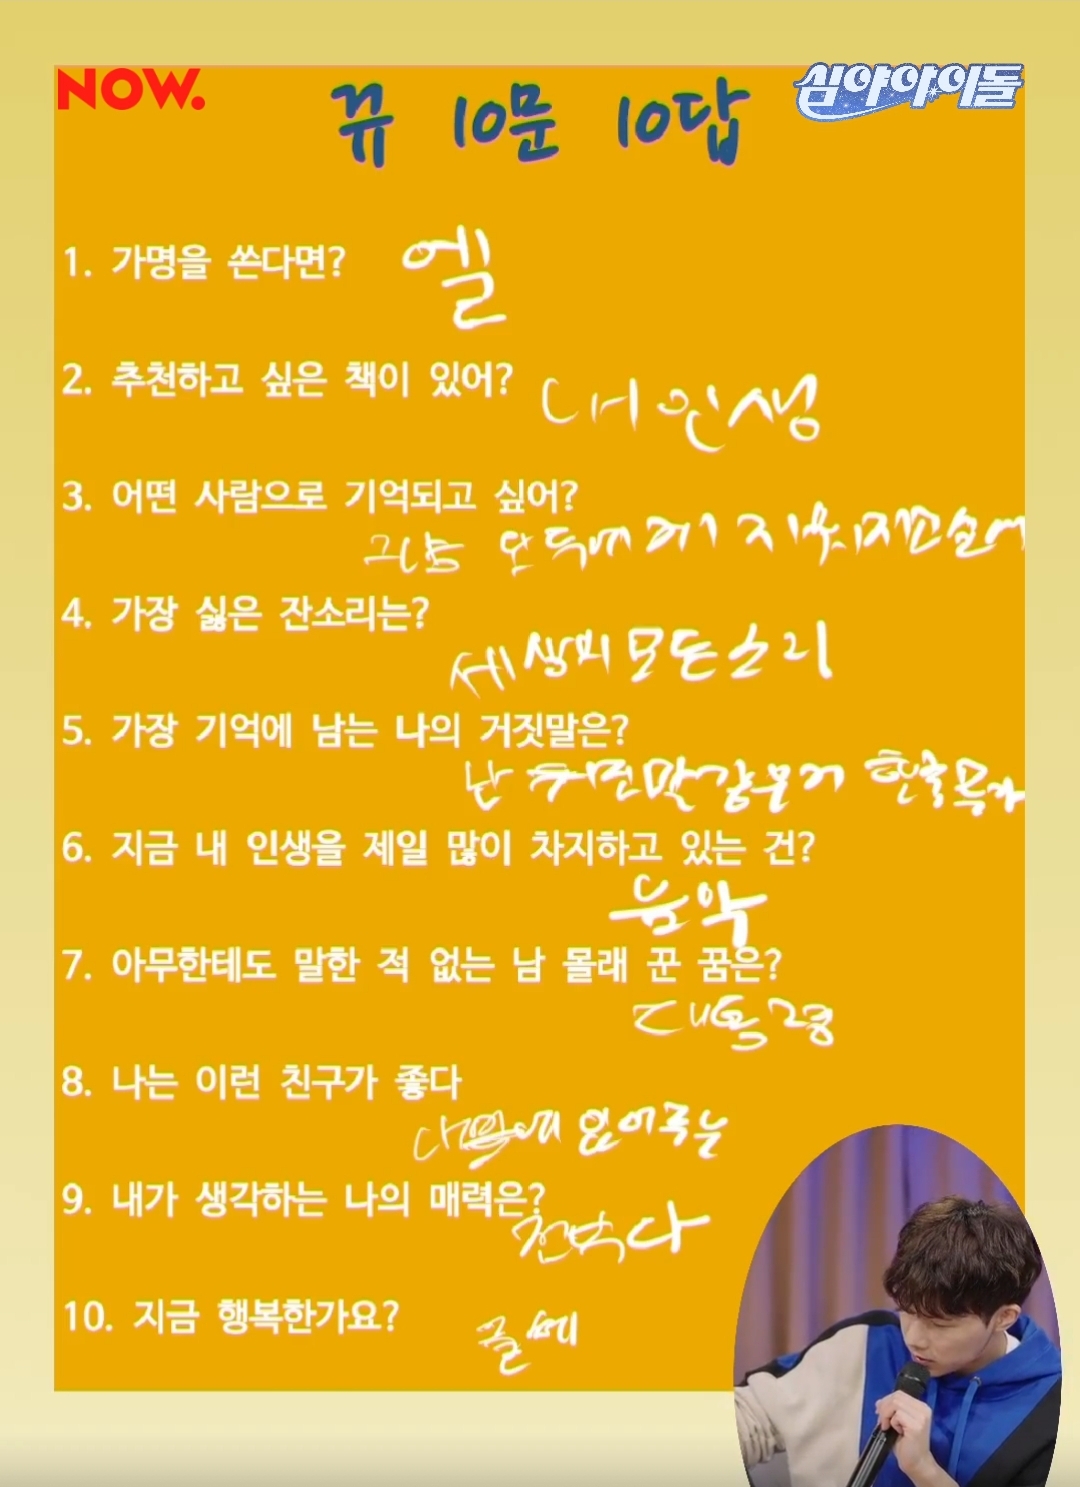 NOW.
심야아이돌
뀨 10문 10답
1. 가명을 쓴다면? 엘
2. 추천하고 싶은 책이 있어? 내 인생
3. 어떤 사람으로 기억되고 싶어?
그냥 모두에게
4. 가장 싫은 잔소리는?
세상의 모든 소리
5. 가장 기억에 남는 나의 거짓말은?
난
6. 지금 내 인생을 제일 많이 차지하고 있는 건?
음악
7. 아무한테도 말한 적 없는 남 몰래 꾼 꿈은?
대통령
8. 나는 이런 친구가 좋다
웃어주는
9. 내가 생각하는 나의 매력은?
천 번다
10. 지금 행복한가요? 글쎄